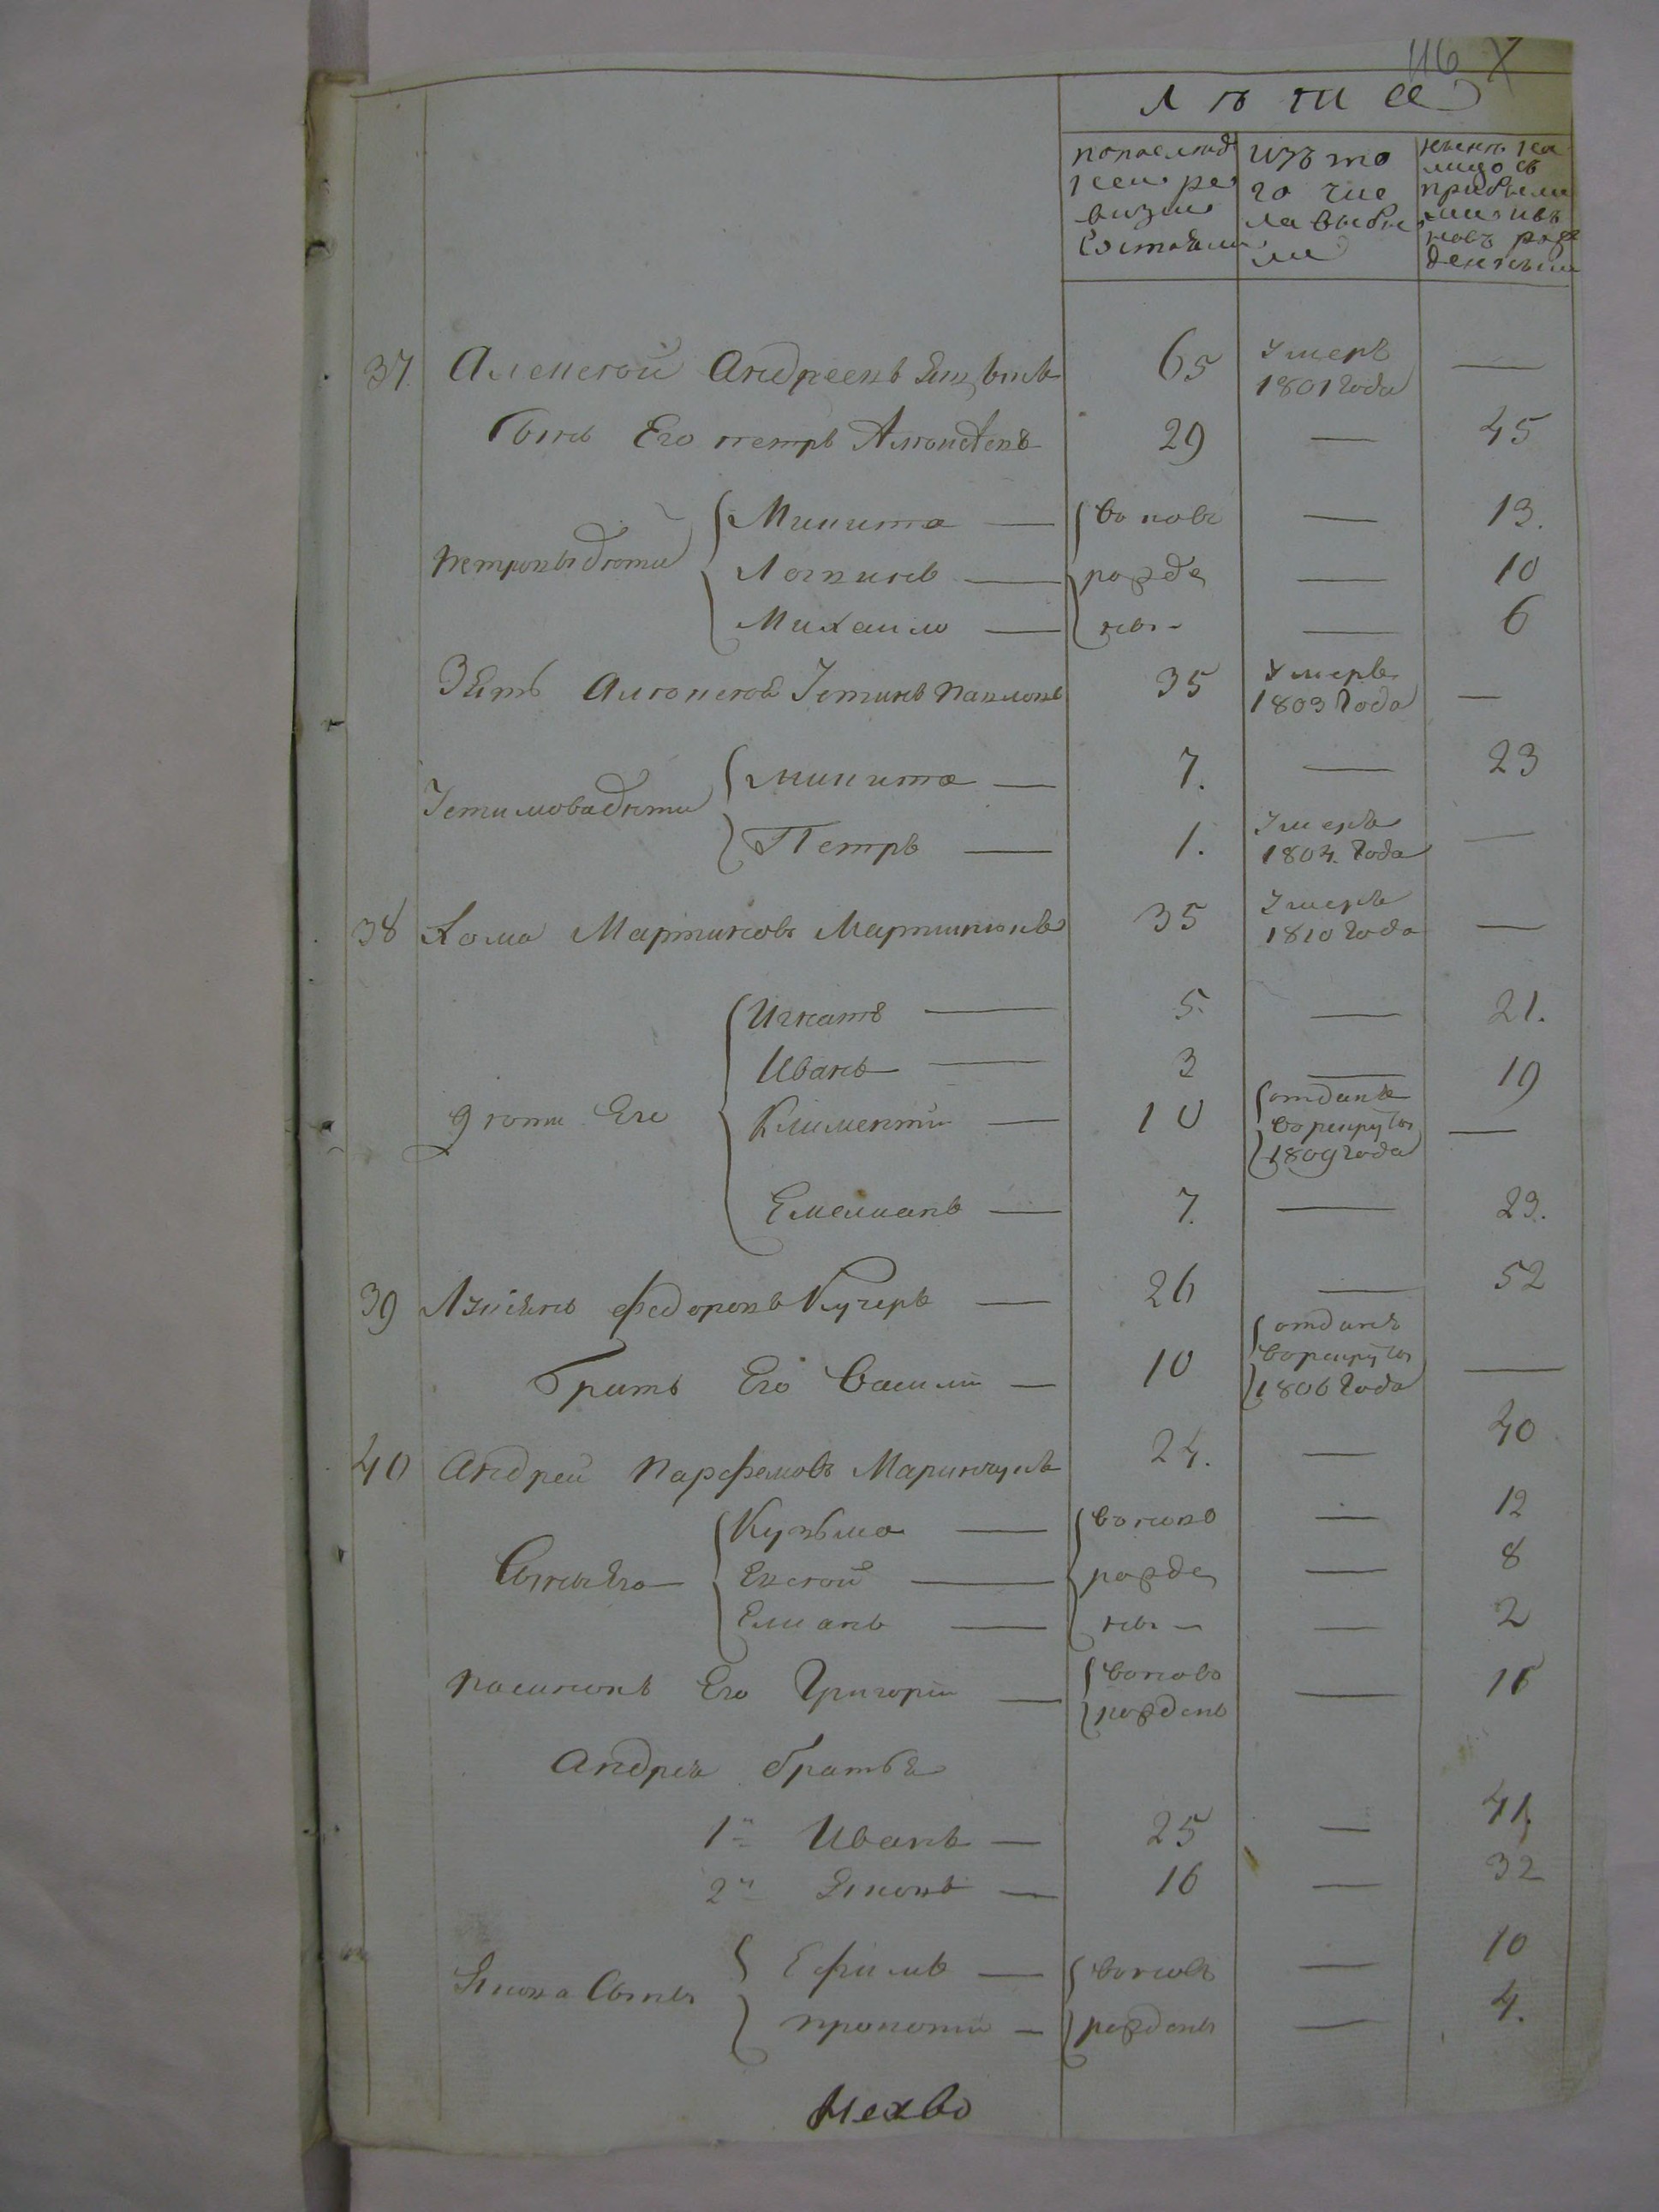 116
лѣта
попослед
ней ре
визии
состояли
изъ то
го чис
ла выбы
ли
ныне на
лицо съ
прибылы
ми и въ
новъ рож
денными
37 Алексей Андреевъ 65 умеръ 1801 года —
Сынъ Его петръ Алексеевъ 29 — 45
петровы дети
Микита — вновь — 13.
Логвинъ — рожде — 10
Михаило — ны — 6
Зять Алексея Устинъ павловъ 35 умеръ 1803 года —
Устимова дети
микита — 7. — 23
Петръ — 1. умеръ 1804. года —
38 Хома Мартиновъ Мартинюкъ 35 умеръ 1810 года —
дети Его
Игнатъ — 5. — 21.
Иванъ — 3 — 19
Климентии — 10 отданъ врекруты 1809 года —
Емелианъ — 7. — 23.
39 федоровъ Кучеръ — 26 — 52
братъ Его Васили — 10 отданъ врекруты 1806 года —
40 Андрей парфемовъ Маринчукъ 24. — 40
Сыны Его
Кузьма — вновь — 12
Евсей — рожде — 8
Емианъ — ны — — 2
пасинокъ Его Григории — вновь рожденъ — 16
Андрея братья
1й Иванъ — 25 — 41.
2й Яковъ — 16 — 32
Якова Сыны
Ефимъ — вновь — 10
прокопи — рождены — 4.